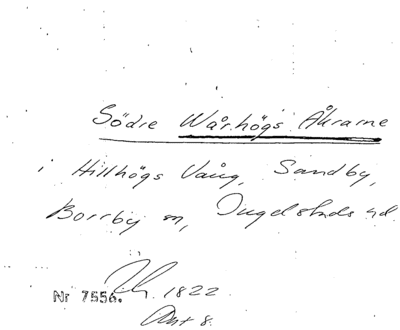 Södre Wårhögs Åkrarne
i Hillhögs Vång, Sandby,
Borrby sn, Ingelstads hd.
1822
Nr 7556.
Akt 8.